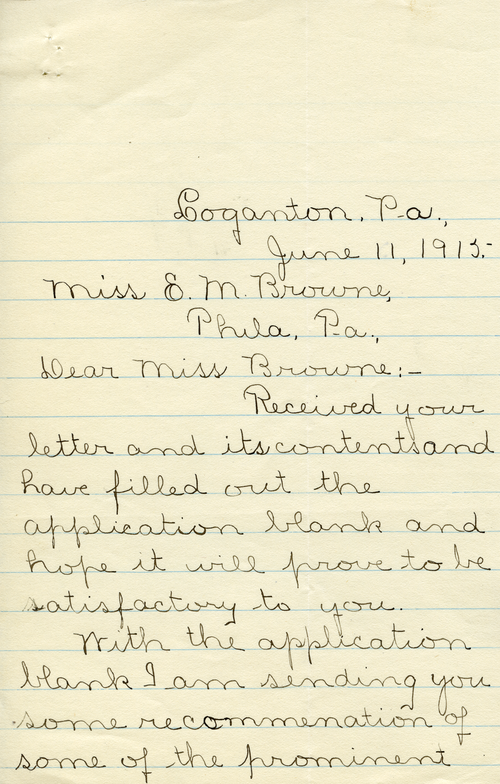 Loganton, Pa.,
June 11, 1915.-
Miss E. M. Browne,
Phila, Pa.,
Dear Miss Browne:-
Received your
letter and its contents and
have filled out the
application blank and
hope it will prove to be
satisfactory to you.
With the application
blank I am sending you
some recommenation of
some of the prominent